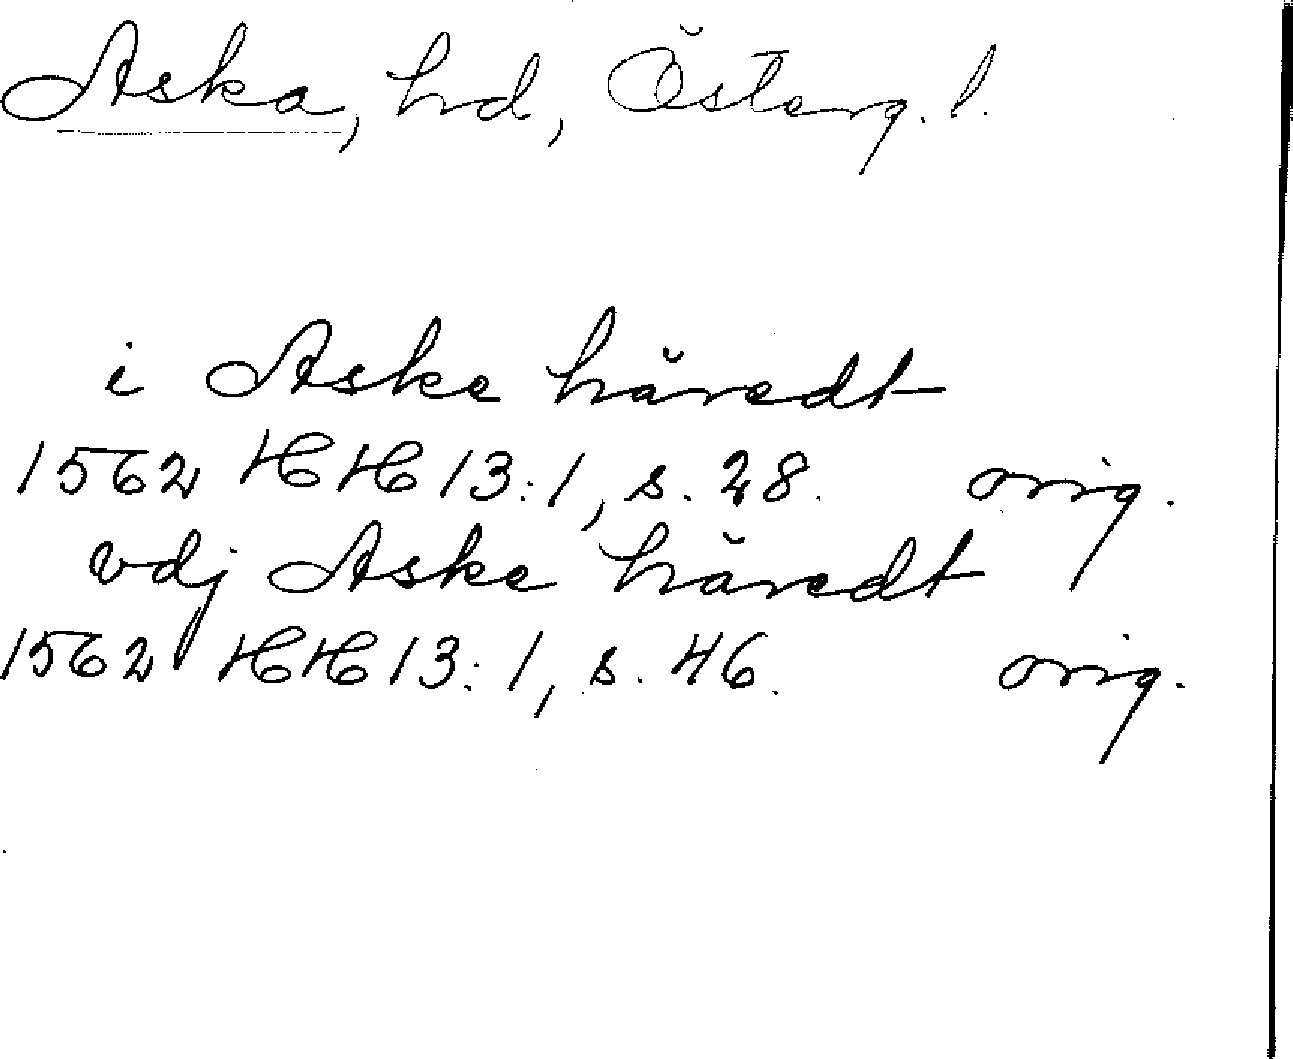 Aska, hd, Österg. l.
i Aske häredt
1562 HH 13:1, s. 28. orig.
vdj Aske häredt
1562 HH 13:1, s. 46. orig.